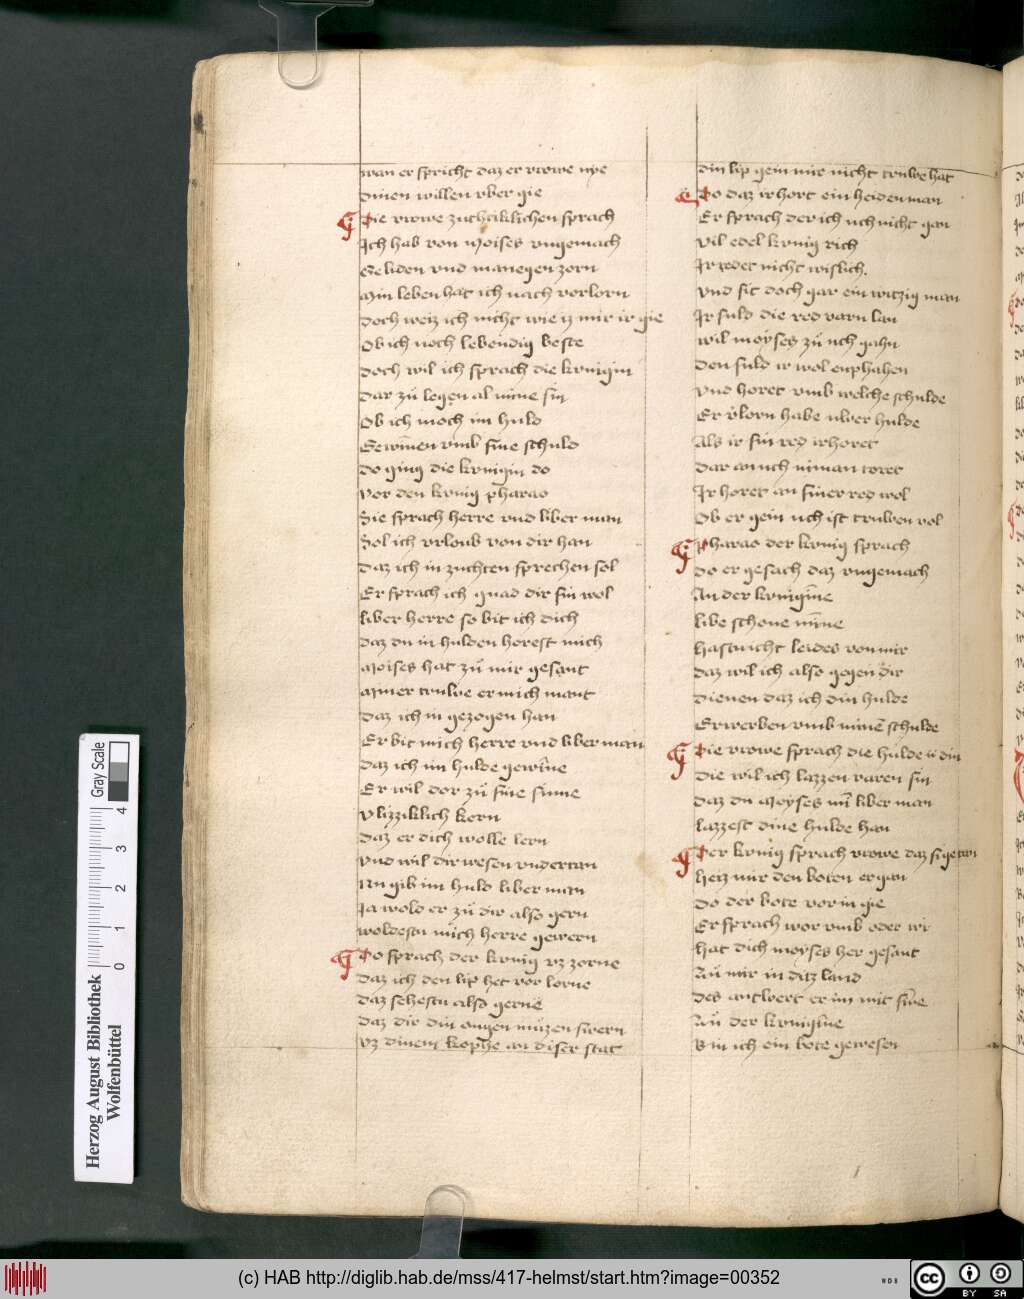 wan er spricht daz er vrowe nye
dinen willen vber gie
Die vrowe zuchtiklichen sprach
Ich hab von moises vngemach
Geliden vnd manegen zorn
Min leben hat ich nach vorlorn
Doch weiz ich nicht wie iz mir ir gie
Ob ich noch lebendig beste
Doch wil ich sprach die kvnigin
Dar zů legen al mine sin
Ob ich moch im huld
Gewīnen vmb sine schuld
Do ging die kvnigin do
Vor den kvnig pharao
Sie sprach herre vnd liber man
Sol ich vrloub von dir han
Daz ich in zuchten sprechen sol
Er sprach ich gnad dir sin wol
liber herre so bit ich dich
Daz du in hulden horest mich
Moises hat zů mir gesant
Miner truwe er mich mant
Daz ich in gezogen han
Er bit mich herre vnd liber man
Daz ich im hulde gewīne
Er wil dor zů sine sinne
Vlizziklich kern
Daz er dich wolle lern
Vnd wil dir wesen vndertan
Nu gib im huld liber man
Ja wold er zů dir also gern
woldestu mich herre gewern
Do sprach der kvnig vz zorne
Daz ich den lip het vor lorne
Daz sehestu also gerne
Daz dir din ougen můzen swern
Vz dinem kophe an diser stat
din lip gein mir nicht truwe hat
Do daz irhort ein heiden man
Er sprach der ich uch nicht gan
Vil edel kvnig rich
Ir redet nicht wislich.
Vnd sit doch gar ein witzig man
Ir suld die red varn lan
wil moyses zů uch gahn
Den suld ir wol enphahen
Vnd horet vmb welche schulde
Er v̄lorn habe uwer hulde
Als ir sin red irhoret
Dar an uch niman toret
Ir horet an siner red wol
Ob er gein uch ist truwen vol
Pharao der kvnig sprach
Do er gesach daz vngemach
An der kvnigīne
libe schone mīne
Hastu icht leides von mir
Daz wil ich also gegen dir
Dienen daz ich din hulde
Erwerben vmb minē schulde
Die vrowe sprach die hulde din
Die wil ich lazzen varen sin
Daz du Moyses min liber man
lazzest dine hulde han
Der kvnig sprach vrowe daz si getan
Heiz mir den boten ergan
Do der bote vor in gie
Er sprach wor vmb oder wi
Hat dich moyses her gesant
Zů mir in ditz land
Des antwert er im mit sine
Zů der kvnigīne
Bin ich ein bote gewesen
Herzog August Bibliothek
Wolfenbüttel
Gray Scale
0 1 2 3 4
(c) HAB http://diglib.hab.de/mss/417-helmst/start.htm?image=00352
WDB
cc BY SA